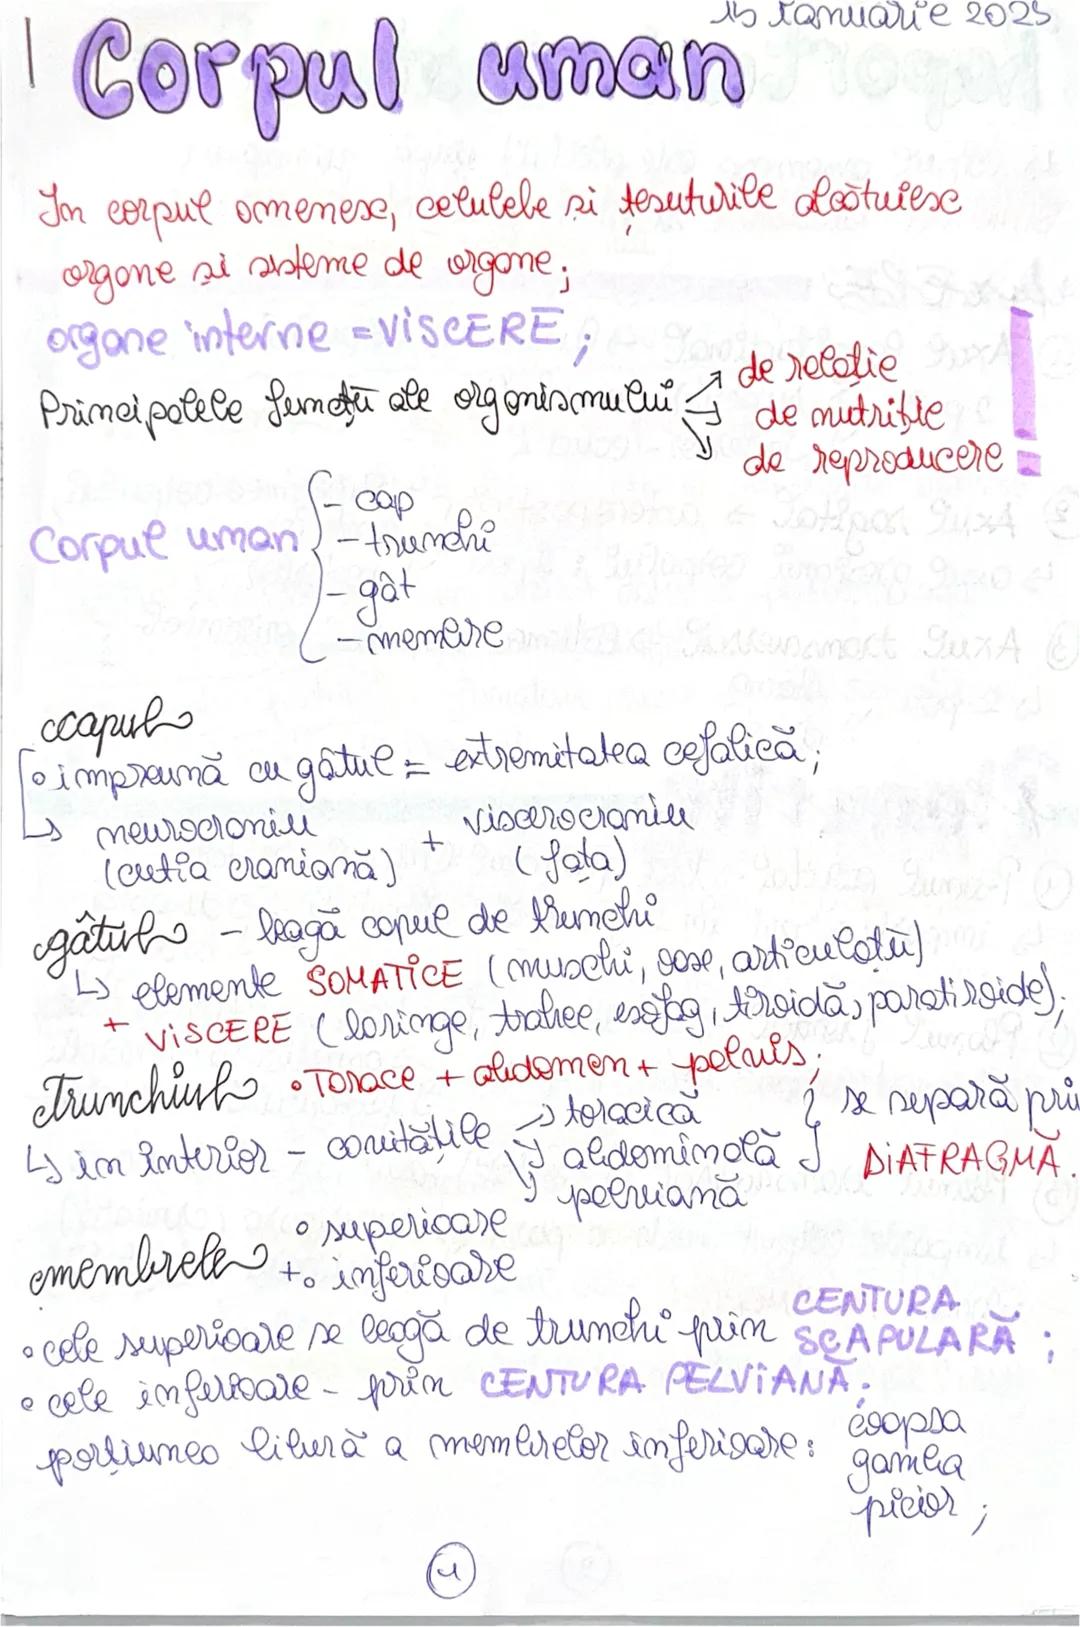 15 Ianuarie 2025
Corpul uman
În corpul omenesc, celulele si țesuturile alcătuiesc
organe si sisteme de organe;
organe interne = VISCERE;
Principalele funcții ale organismului
de relație
de nutriție
de reproducere
Corpul uman
- cap
- trunchi
- gât
- membre
capul
împreună cu gâtul = extremitatea cefalică;
neurocraniu + viscerocraniu
(cutia craniană) (fața)
gâtul - leagă capul de trunchi
↳ elemente SOMATICE (muschi, oase, articulații)
+ VISCERE (laringe, trahee, esofag, tiroidă, paratiroide);
trunchiul • Torace + abdomen + pelvis;
↳ în interior - cavitățile → toracică
abdominală
pelviană
se separă pri
DIAFRAGMĂ.
membrele
• superioare
+ • inferioare
• cele superioare se leagă de trunchi prin CENTURA SCAPULARĂ;
• cele inferioare - prin CENTURA PELVIANĂ.
porțiunea liberă a membrelor inferioare: coapsa
gamba
picior;